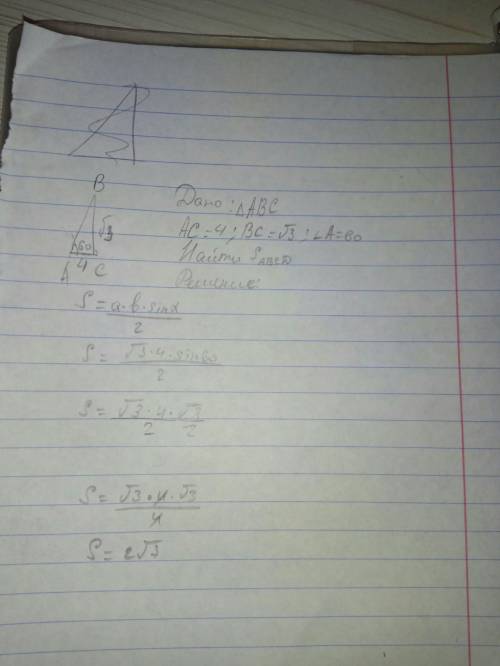 B
√3
60
4
A C
Дано: △ABC
AC=4; BC=√3; ∠A=60
Найти S
Решение:
S = a·b·sinα / 2
S = √3·4·sin60 / 2
S = √3·4·√3 / 2 2
S = √3·4·√3 / 4
S = 2√3